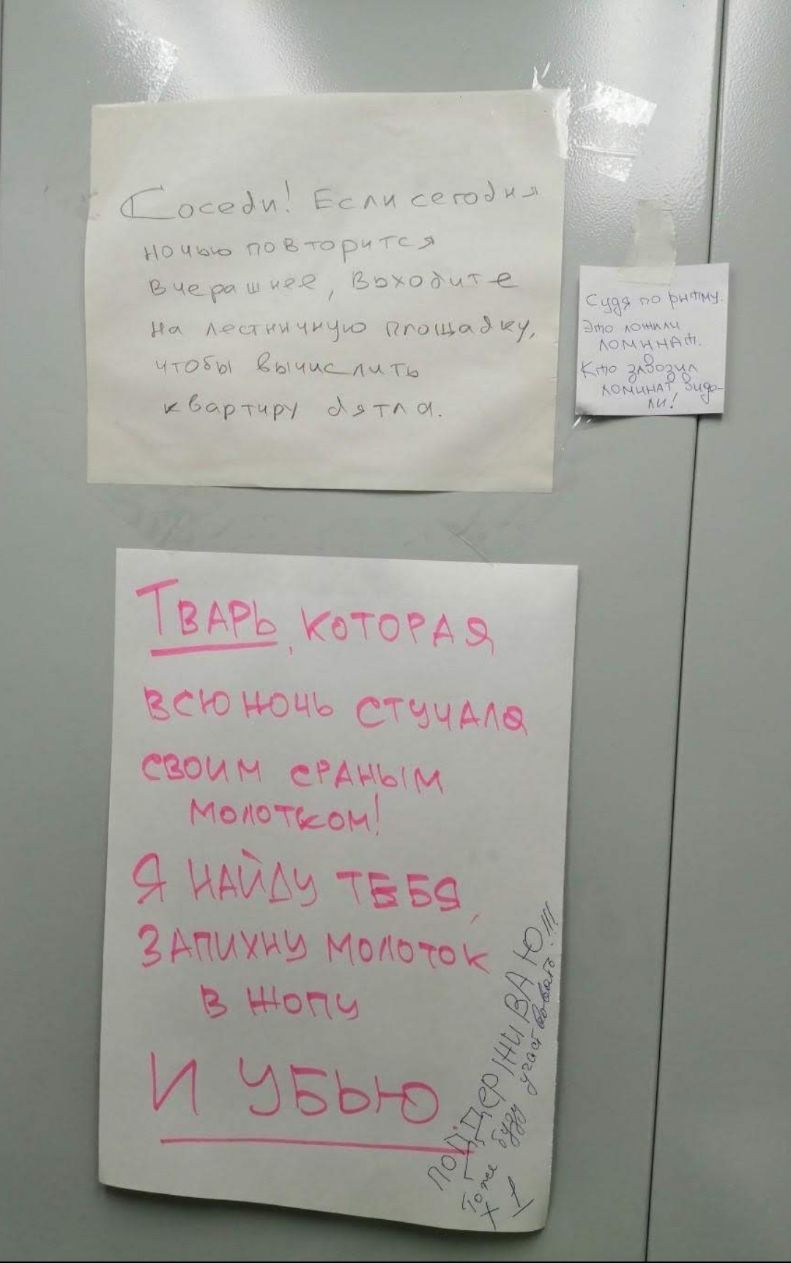 Соседи! Если сегодня
ночью повторится
вчерашнее, выходите
на лестничную площадку,
чтобы вычислить
квартиру дятла.
Судя по ритму.
Это ложили
ломинат.
Кто завозил
ломинат видо-
ли!
Тварь, которая
всю ночь стучала
своим сраным
молотком!
Я найду тебя,
запихну молоток
в жопу
и убью
ПОДДЕРЖИВАЮ!!!
Тоже буду участвовать!
X 1